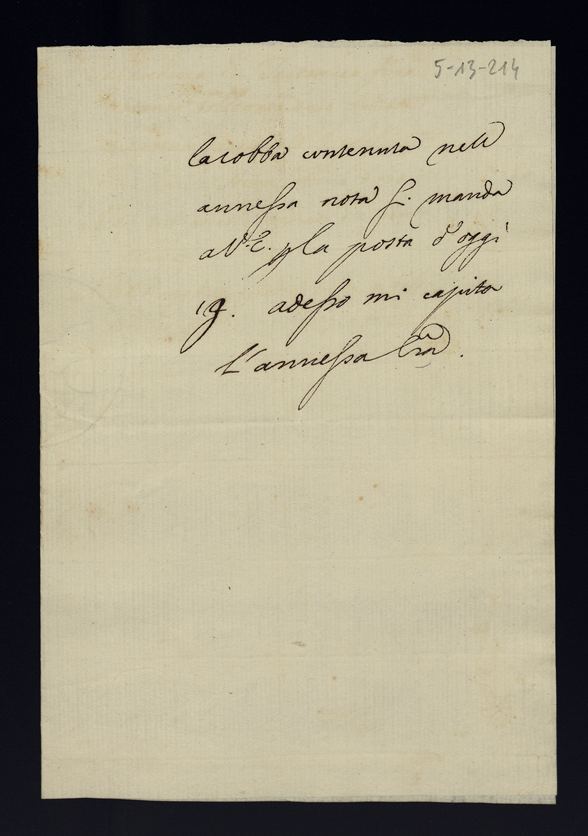 5-13-214
la robba contenuta nell
annessa nota S. manda
a V. E. p la posta d'oggi
19. adesso mi capita
l'annessa lra.